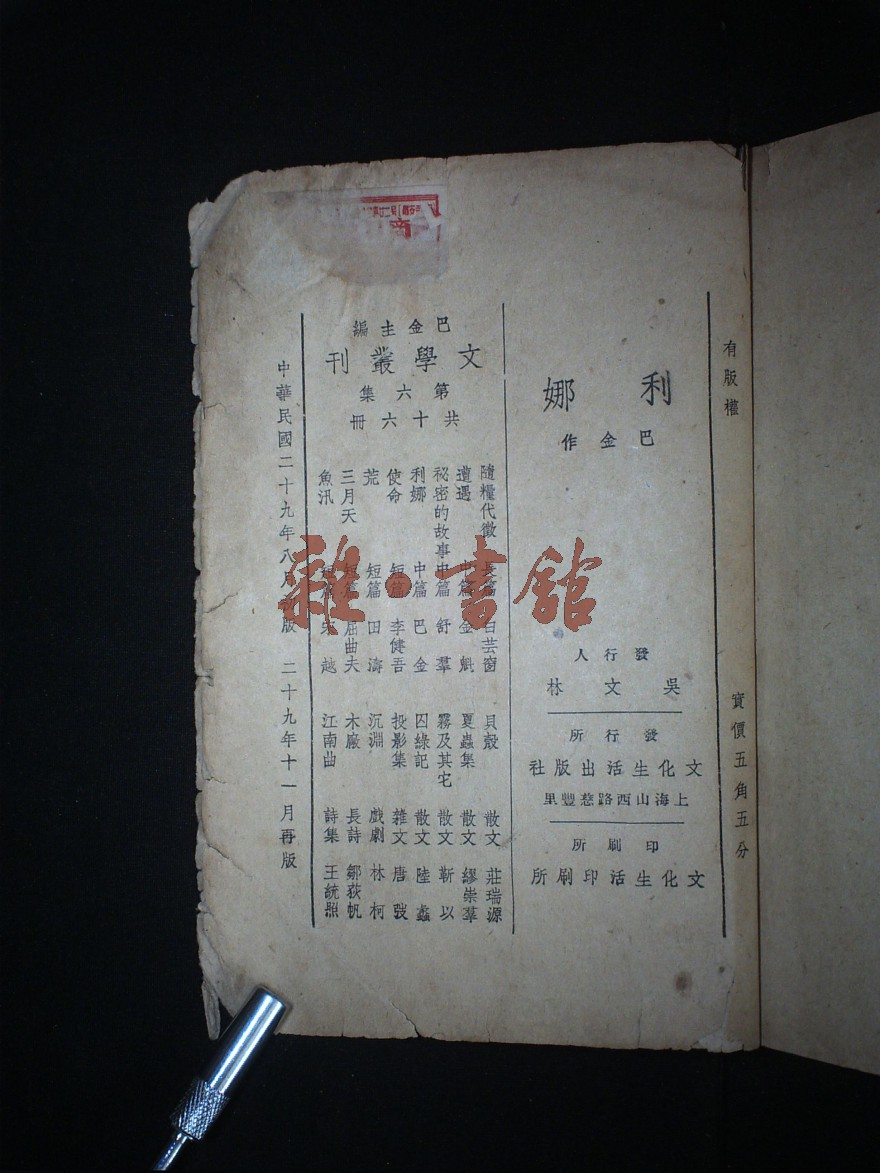 有版權
實價五角五分
利娜
巴金作
發行人
吳文林
發行所
文化生活出版社
上海山西路慈豐里
印刷所
文化生活印刷所
巴金主編
文學叢刊
第六集
共十六冊
隨糧代徵 長篇 白芸窗
遭遇 中篇 金魁
祕密的故事 中篇 舒羣
利娜 中篇 巴金
使命 短篇 李健吾
荒 短篇 田濤
三月天 短篇 屈曲夫
魚汛 短篇 宋越
貝殼 散文 莊瑞源
夏蟲集 散文 繆崇羣
霧及其它 散文 靳以
囚綠記 散文 陸蠡
投影集 雜文 唐弢
沉淵 戲劇 林柯
木廠 長詩 鄒荻帆
江南曲 詩集 王統照
中華民國二十九年八月初版 二十九年十一月再版
商
雜·書館